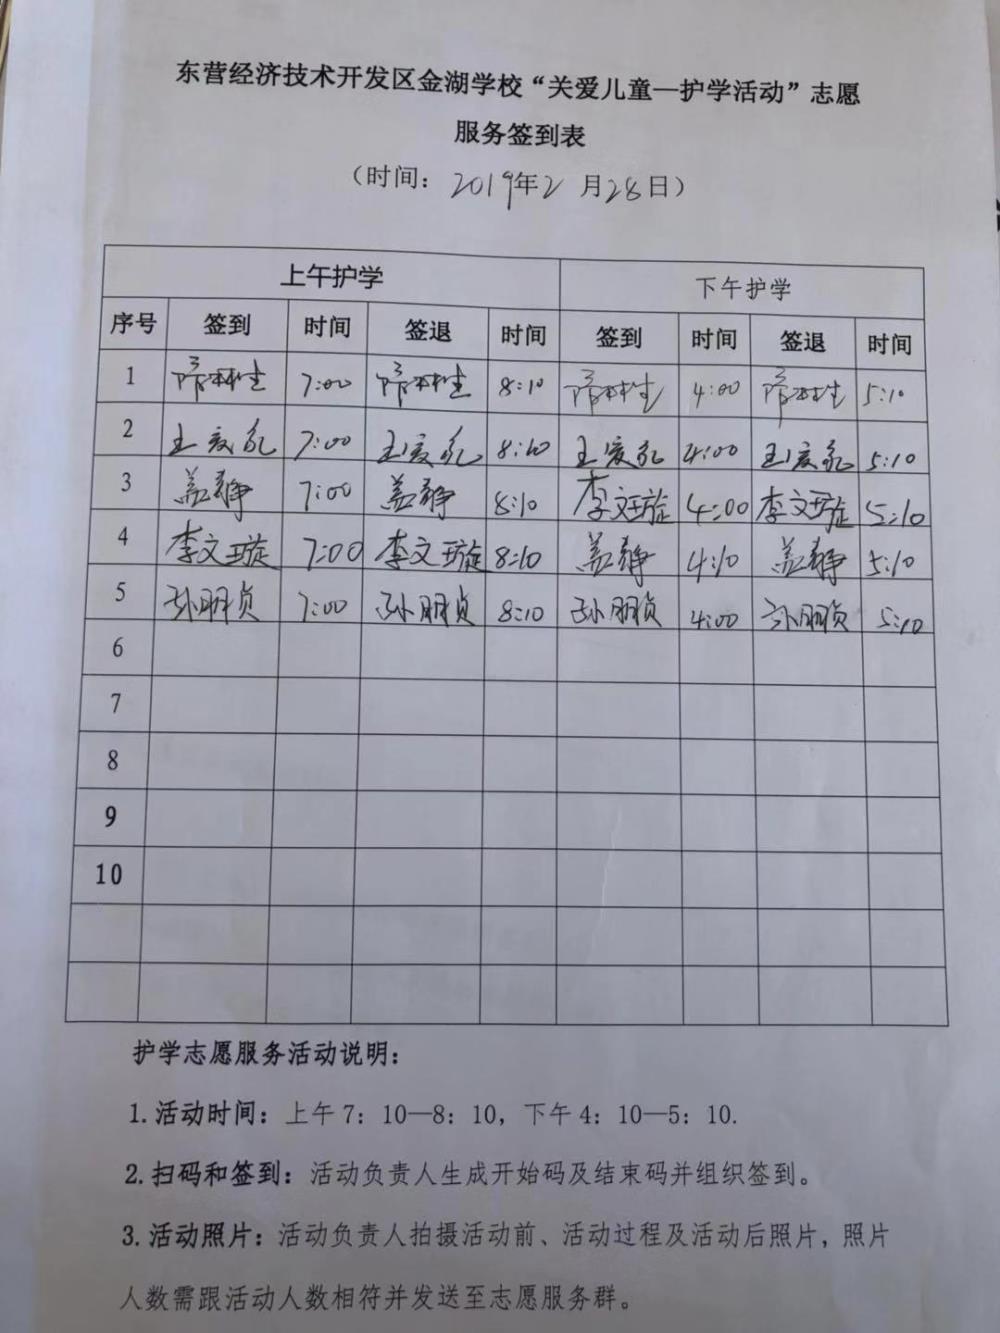 东营经济技术开发区金湖学校“关爱儿童—护学活动”志愿
服务签到表
（时间：2019年2月28日）
上午护学 下午护学
序号 签到 时间 签退 时间 签到 时间 签退 时间
1 7:00 8:10 4:00 5:10
2 7:00 8:10 4:00 5:10
3 盖静 7:00 盖静 8:10 李文璇 4:00 李文璇 5:10
4 李文璇 7:00 李文璇 8:10 盖静 4:10 盖静 5:10
5 孙朋贞 7:00 孙朋贞 8:10 孙朋贞 4:00 孙朋贞 5:10
6
7
8
9
10
护学志愿服务活动说明：
1.活动时间：上午7：10—8：10，下午4：10—5：10.
2.扫码和签到：活动负责人生成开始码及结束码并组织签到。
3.活动照片：活动负责人拍摄活动前、活动过程及活动后照片，照片
人数需跟活动人数相符并发送至志愿服务群。